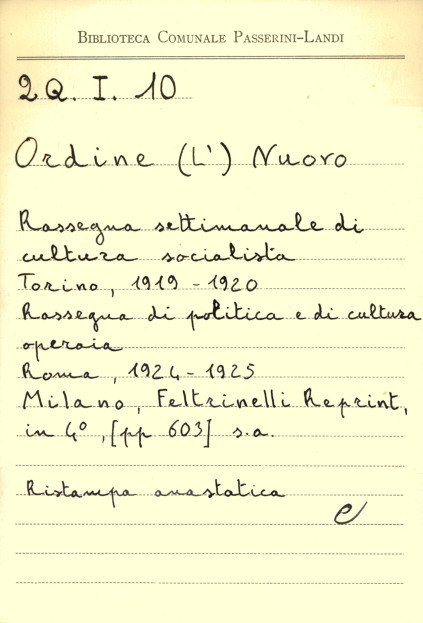 BIBLIOTECA COMUNALE PASSERINI-LANDI
2Q. I. 10
Ordine (L') Nuovo
Rassegna settimanale di
cultura socialista
Torino, 1919 - 1920
Rassegna di politica e di cultura
operaia
Roma, 1924 - 1925
Milano, Feltrinelli Reprint,
in 4°, [pp 603] s.a.
Ristampa anastatica
e